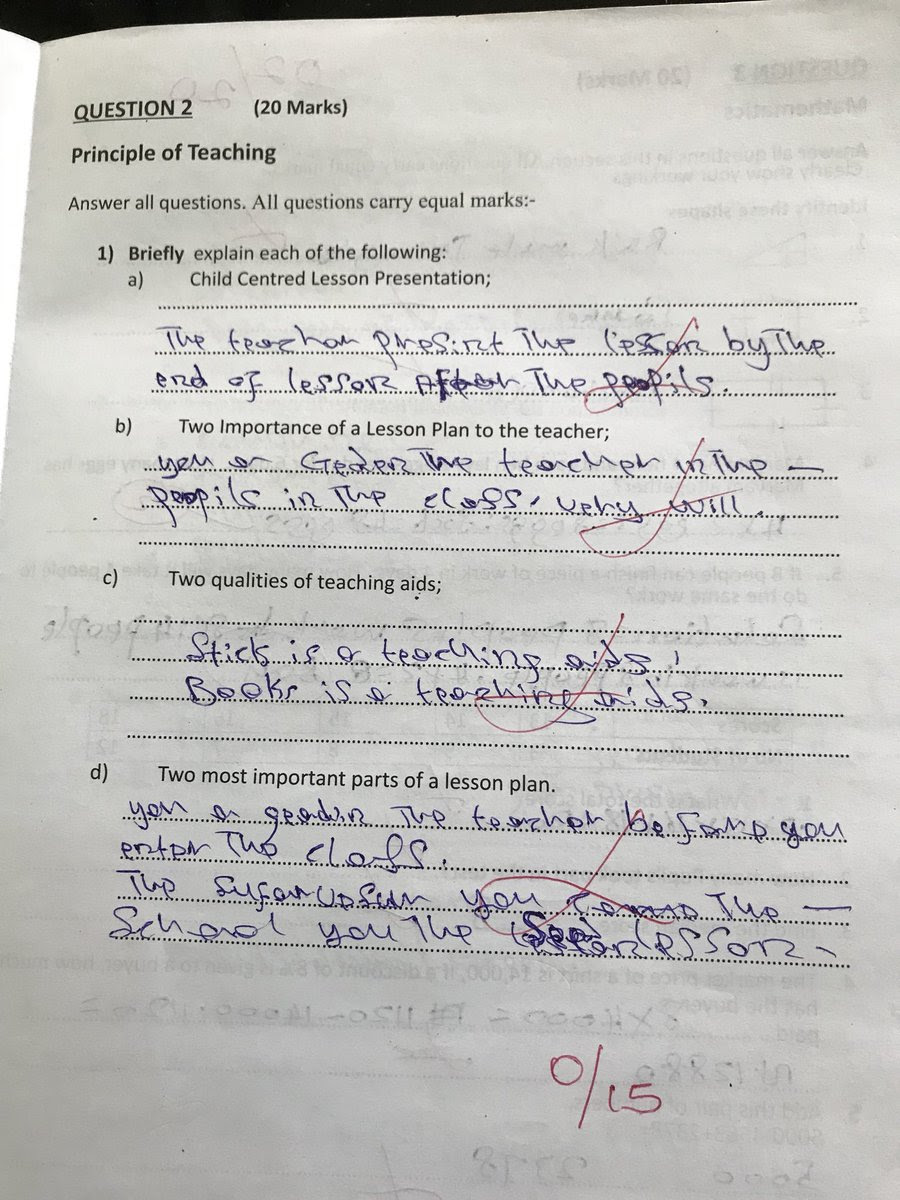 QUESTION 2 (20 Marks)
Principle of Teaching
Answer all questions. All questions carry equal marks:-
1) Briefly explain each of the following:
a) Child Centred Lesson Presentation;
The teachar presint The lesson by The
end of lesson After The poopils.
b) Two Importance of a Lesson Plan to the teacher;
you er The teacher in The —
poopils in The class, very will.
c) Two qualities of teaching aids;
Stick is a teaching aids,
Books is a teaching aids.
d) Two most important parts of a lesson plan.
you er The teacher before you
enter The class.
The you The —
School you The lesson -
0/15